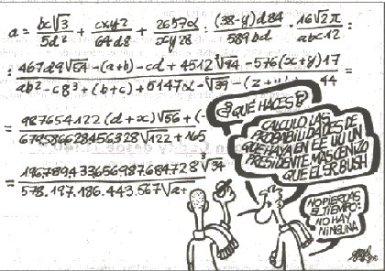 a = bc√3 / 5d² + cxy2 / 64d8 + 2657a / xy28 : (38-y)d84 / 589bd · 16√2π / abc12 :
: 467d9√54 -(a+b) - cd + 4512 -576(x+y)17 =
ab² - c8³ + (b+c) + 5147x - √39 -(z 44
= 987654122(d+x)√56 + (-
√422 + 165
= ³√34
578.197.186.443.567√a+
¿QUÉ HACES?
CALCULO LAS
PROBABILIDADES DE
QUE HAYA EN EE UU UN
PRESIDENTE MÁS CENIZO
QUE EL SR. BUSH
NO PIERDAS
EL TIEMPO:
NO HAY
NINGUNA